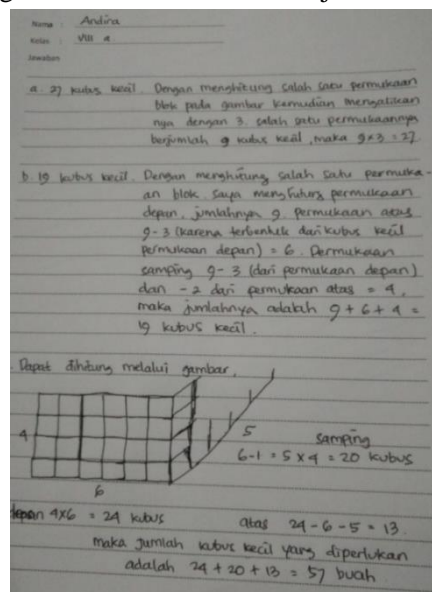 Nama : Andira
Kelas : VIII a
Jawaban
a. 27 kubus kecil. Dengan menghitung salah satu permukaan
blok pada gambar kemudian mengalikan
nya dengan 3. salah satu permukaannya
berjumlah 9 kubus kecil, maka 9x3 = 27.
b. 19 kubus kecil. Dengan menghitung salah satu permuka-
an blok. Saya menghitung permukaan
depan, jumlahnya 9. permukaan atas
9-3 (karena terbentuk dari kubus kecil
permukaan depan) = 6. Permukaan
samping 9-3 (dari permukaan depan)
dan -2 dari permukaan atas = 4,
maka jumlahnya adalah 9 + 6 + 4 =
19 kubus kecil.
Dapat dihitung melalui gambar.
4
5
6
samping
6-1 = 5 x 4 = 20 kubus
depan 4x6 = 24 kubus
atas 24-6-5 = 13.
maka jumlah kubus kecil yang diperlukan
adalah 24 + 20 + 13 = 57 buah